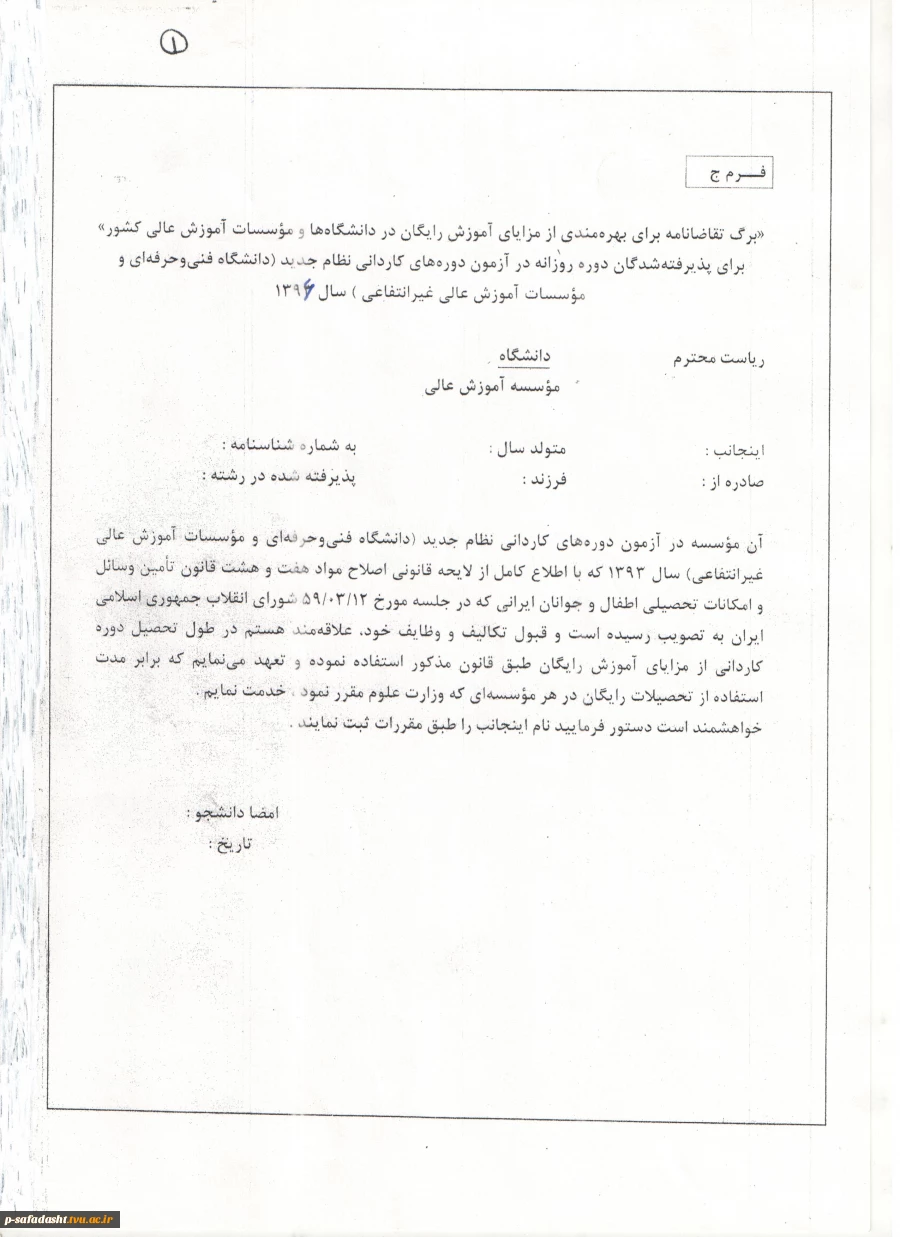 ۱
فـــرم ج
«برگ تقاضانامه برای بهره‌مندی از مزایای آموزش رایگان در دانشگاه‌ها و مؤسسات آموزش عالی کشور»
برای پذیرفته‌شدگان دوره روزانه در آزمون دوره‌های کاردانی نظام جدید (دانشگاه فنی‌وحرفه‌ای و
مؤسسات آموزش عالی غیرانتفاعی ) سال ۱۳۹۶
ریاست محترم دانشگاه
مؤسسه آموزش عالی
اینجانب : متولد سال : به شماره شناسنامه :
صادره از : فرزند : پذیرفته شده در رشته :
آن مؤسسه در آزمون دوره‌های کاردانی نظام جدید (دانشگاه فنی‌وحرفه‌ای و مؤسسات آموزش عالی
غیرانتفاعی) سال ۱۳۹۳ که با اطلاع کامل از لایحه قانونی اصلاح مواد هفت و هشت قانون تأمین وسائل
و امکانات تحصیلی اطفال و جوانان ایرانی که در جلسه مورخ ۵۹/۰۳/۱۲ شورای انقلاب جمهوری اسلامی
ایران به تصویب رسیده است و قبول تکالیف و وظایف خود، علاقه‌مند هستم در طول تحصیل دوره
کاردانی از مزایای آموزش رایگان طبق قانون مذکور استفاده نموده و تعهد می‌نمایم که برابر مدت
استفاده از تحصیلات رایگان در هر مؤسسه‌ای که وزارت علوم مقرر نمود ، خدمت نمایم .
خواهشمند است دستور فرمایید نام اینجانب را طبق مقررات ثبت نمایند .
امضا دانشجو :
تاریخ :
p-safadasht.tvu.ac.ir